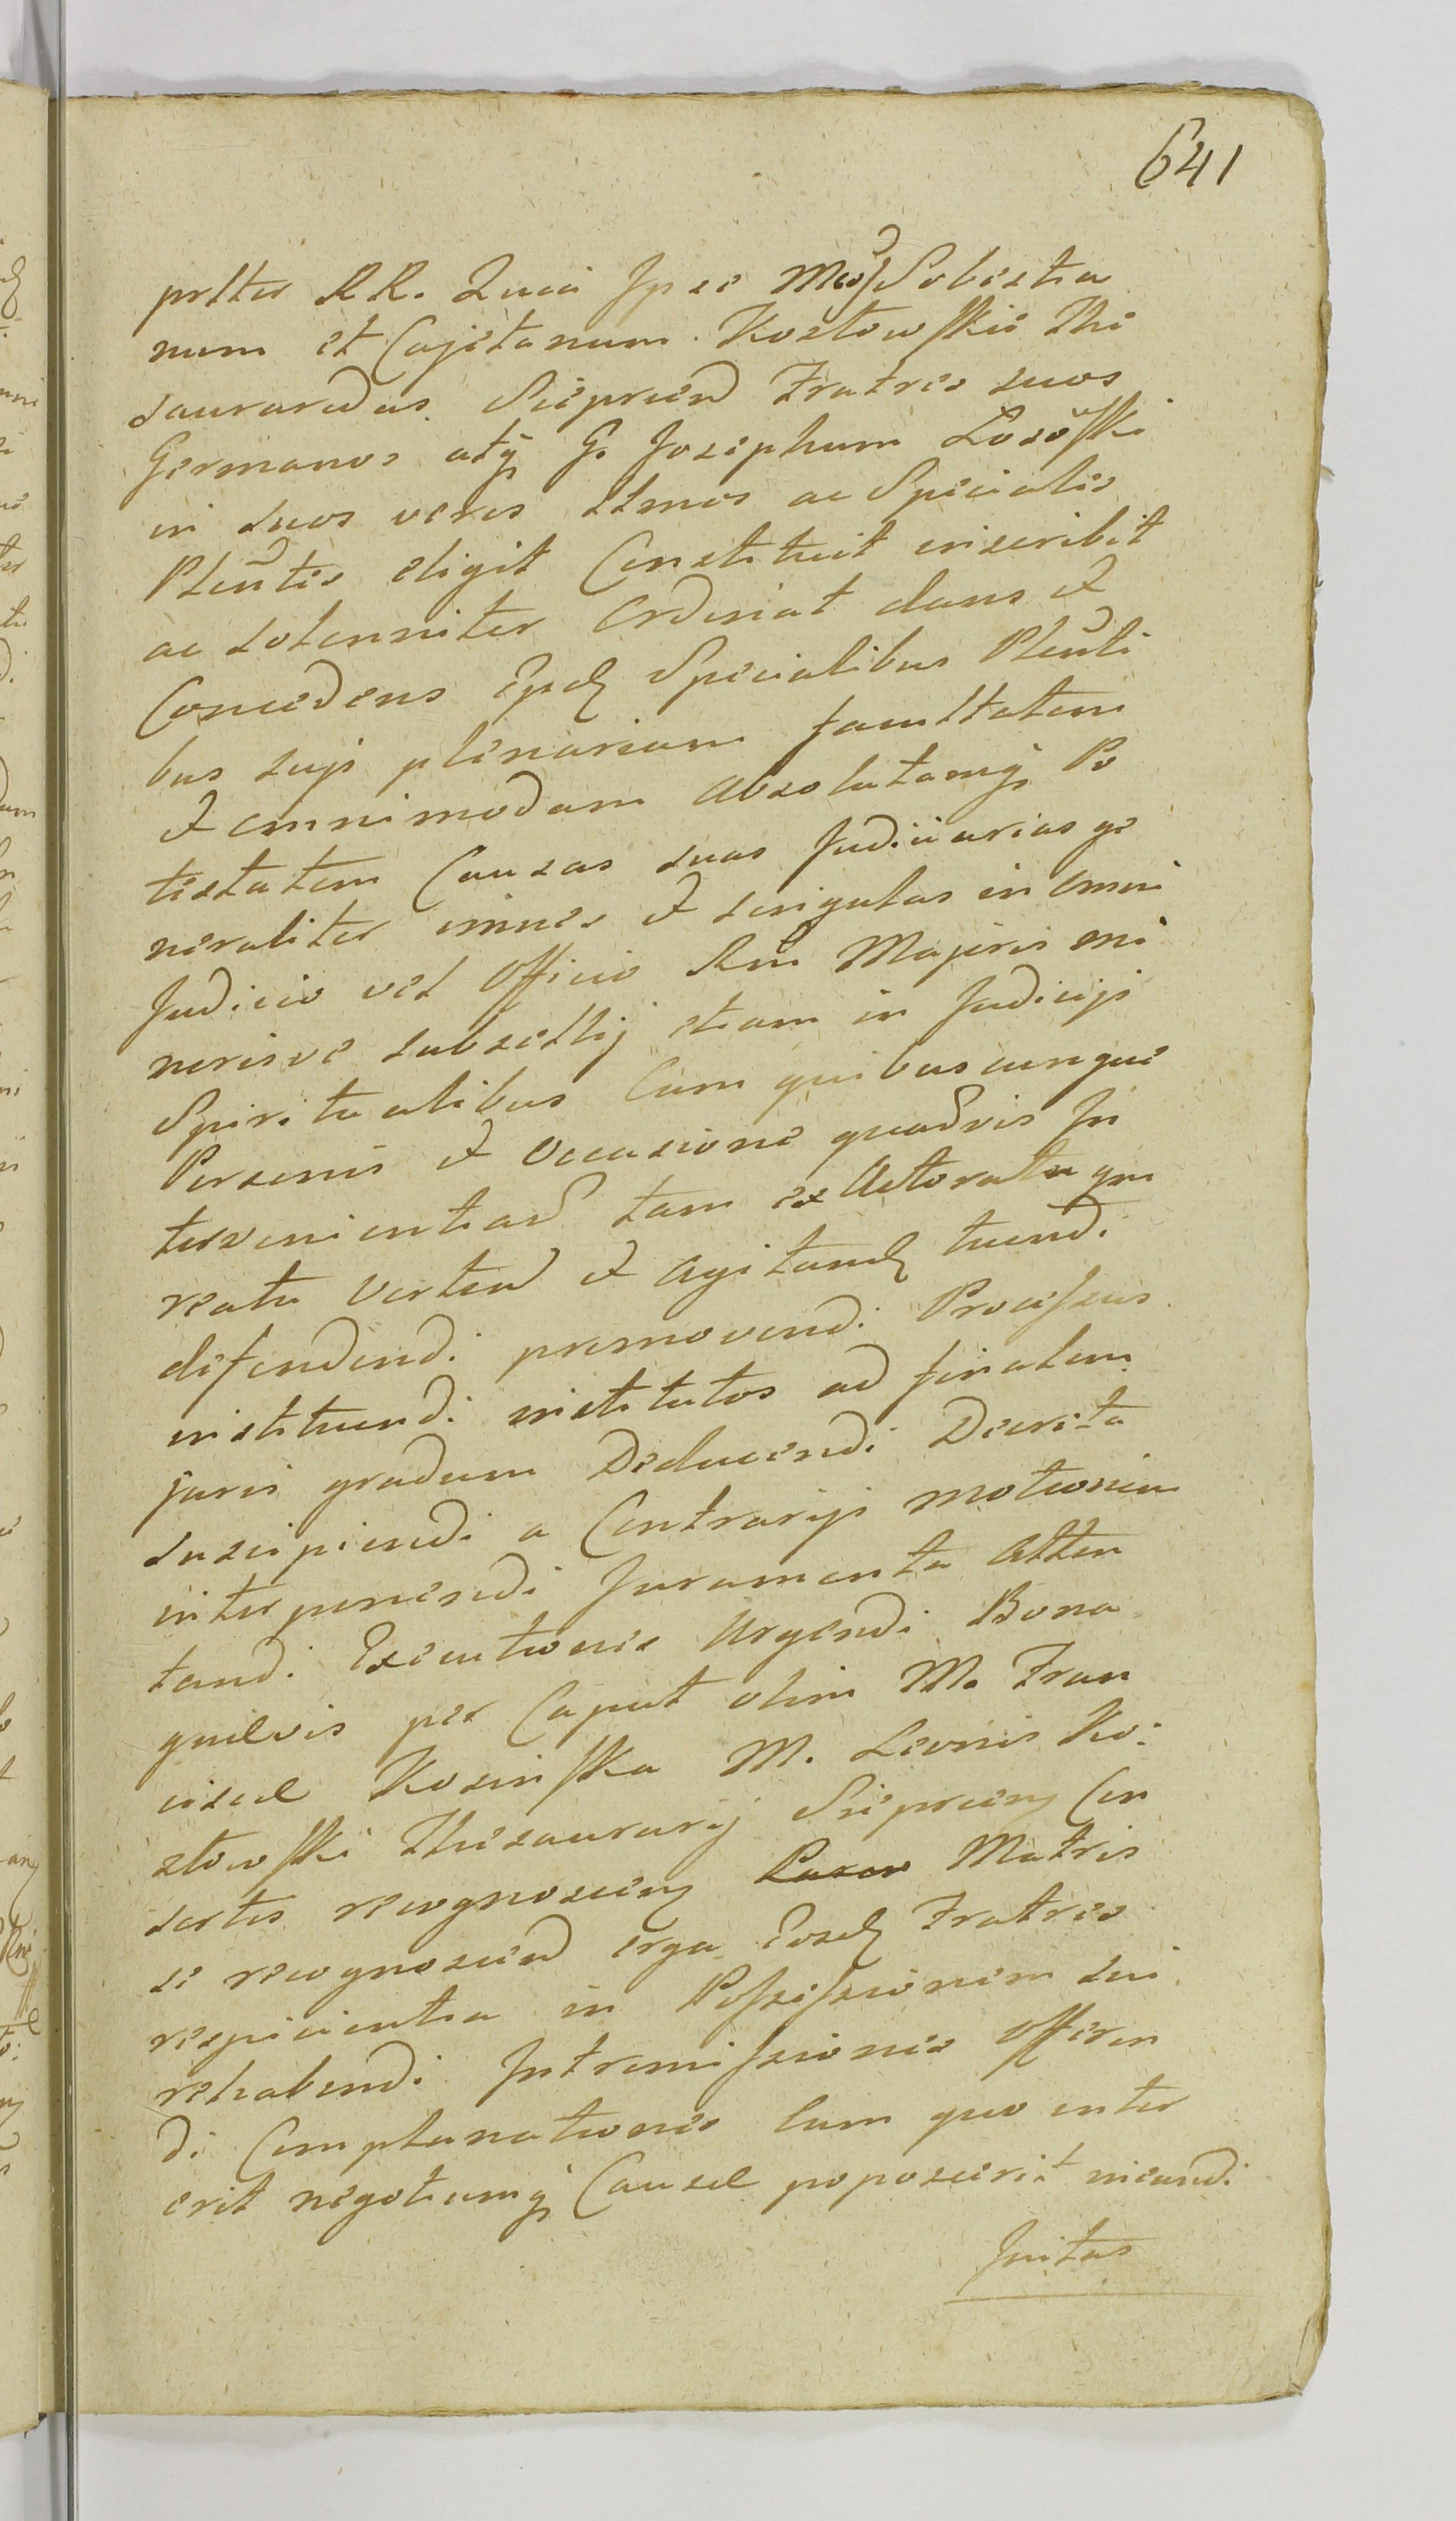 641
pltter RR. Quia Ipse Mcos Sebestia
num et Cajetanum Kozłowskie The
saurarides Sieprcen Fratres suos
Germanos atq G. Josephum Łososki
in suos veros Ltmos ac Speciales
Plentes eligit Constituit inscribit
ac solenniter Ordinat dans et
Concedens Epd Specialibus Plenti
bus suis plenariam facultatem
et omnimodam Absolutamq Po
testatem Causas suas Judiciarias ge
neraliter omnes et singulas in omni
Judicio vel Officio Rni Majoris mi
norisve subsellij etiam in Judicijs
Spiritualibus Cum quibuscunque
Personis et Occasione quadvis In
tervenientiad tam ex Actoratu qm
reatu Verten et Agitand tuendi
defendendi promovendi Processus
instituendi institutos ad finalem
juris gradum Deducendi Decreta
suscipiendi a Contrarijs motionem
interponendi Juramenta Atten
tandi Executiones Urgendi Bona
quævis per Caput olim M. Fran
ciscæ Kosinska M. Leonis Ko:
złowski Thesaurarij Sieprcen Con
sortis recognoscen Matris
se recognoscen erga Eosd Fratres
respicientia in Possessionem sui
rehabendi Intromissiones offeren
di Complanationes Cum quo inter
erit negotiumq Causæ poposcerit ineundi
Initas